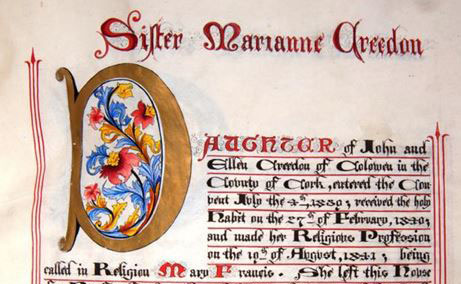 Sister Marianne Creedon
DAUGHTER of John and
Ellen Creedon of Colowen in the
County of Cork, entered the Con
vent July the 4th, 1839; received the holy
Habit on the 27th of February, 1840;
and made her Religious Profession
on the 19th of August, 1841; being
called in Religion Mary Francis. She left this House